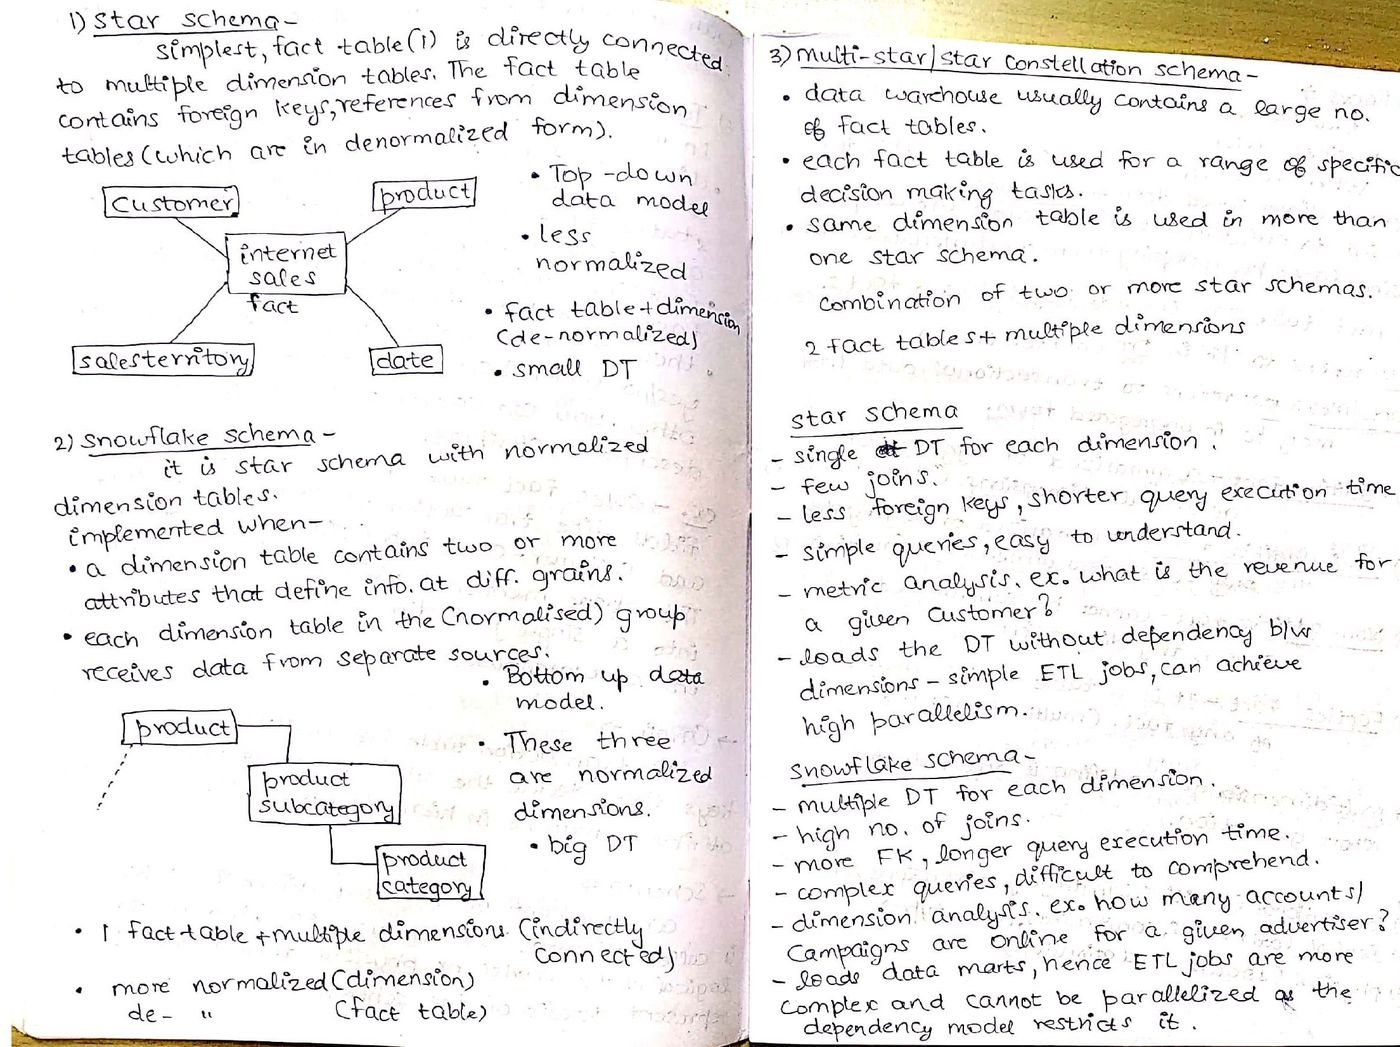 1) Star schema-
simplest, fact table(1) is directly connected
to multiple dimension tables. The fact table
contains foreign keys, references from dimension
tables (which are in denormalized form).
customer
product
internet
sales
fact
salesterritory
date
• Top-down
data model
• less
normalized
• fact table + dimension
(de-normalized)
• small DT
2) snowflake schema-
it is star schema with normalized
dimension tables.
implemented when-
• a dimension table contains two or more
attributes that define info. at diff. grains.
• each dimension table in the (normalised) group
receives data from separate sources.
• Bottom up data
model.
product
product
subcategory
product
category
• These three
are normalized
dimensions.
• big DT
• 1 fact table + multiple dimensions (indirectly
connected)
• more normalized (dimension)
de- " (fact table)
3) multi-star/star constellation schema-
• data warehouse usually contains a large no.
of fact tables.
• each fact table is used for a range of specific
decision making tasks.
• same dimension table is used in more than
one star schema.
combination of two or more star schemas.
2 fact tables + multiple dimensions
star schema
- single DT for each dimension.
- few joins.
- less foreign keys, shorter query execution time
- simple queries, easy to understand.
- metric analysis. ex. what is the revenue for
a given customer?
- loads the DT without dependency b/w
dimensions - simple ETL jobs, can achieve
high parallelism.
snowflake schema-
- multiple DT for each dimension.
- high no. of joins.
- more FK, longer query execution time.
- complex queries, difficult to comprehend.
- dimension analysis. ex. how many accounts/
campaigns are online for a given advertiser?
- loads data marts, hence ETL jobs are more
complex and cannot be parallelized as the
dependency model restricts it.